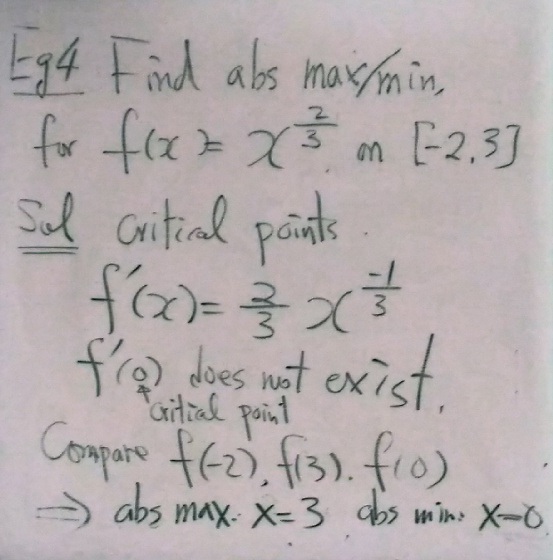 Eg4 Find abs max/min,
for f(x) = x^{2/3} on [-2,3]
Sol critical points.
f'(x) = 2/3 x^{-1/3}
f'(0) does not exist.
critical point
Compare f(-2), f(3). f(0)
⇒ abs max. x=3 abs min. x=0